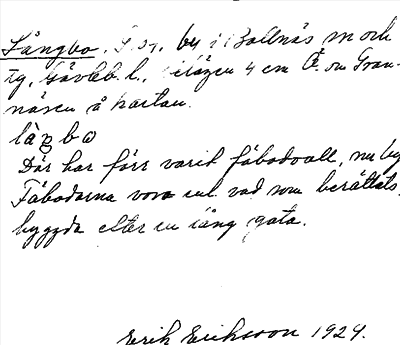 Långbo, S. 
by i Bollnäs sn och
tg, Gävleb. l., belägen 4 cm Ö. om Gran-
näsen å kartan.
Där har förr varit fäbodvall, nu by
Fäbodarna voro enl. vad som berättats
byggda efter en lång gata.
Erik Eriksson 1924.